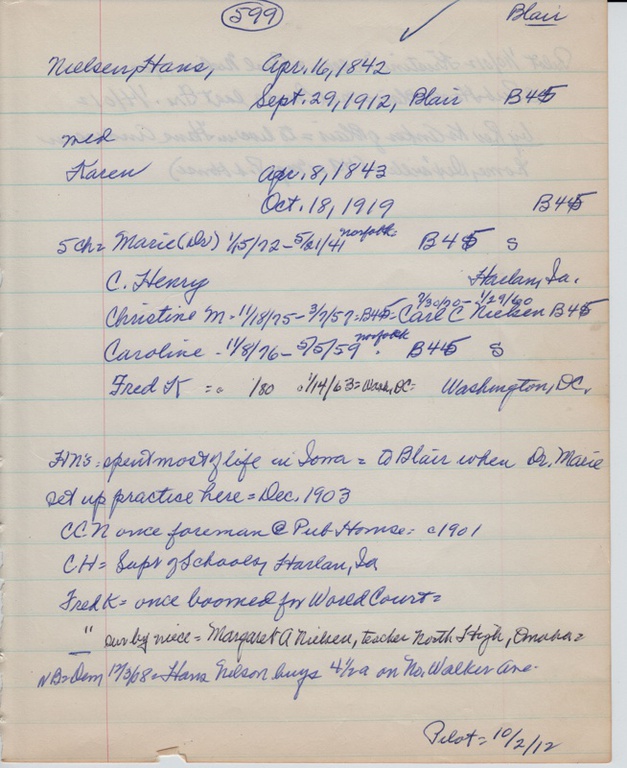 599
Blair
Nielsen, Hans, Apr. 16, 1842
Sept. 29, 1912, Blair B45
med
Karen Apr. 8, 1843
Oct. 18, 1919 B45
5 ch = Marie (Dr) 1/5/72 - 5/21/41 norfolk= B45 S
C. Henry Harlan, Ia.
Christine M - 11/18/75 - 3/7/57 = B45 = Carl C Nielsen B45 7/30/70 - 1/29/60
Caroline - 11/8/76 - 5/5/59 norfolk. B45 S
Fred K = 1/80 1/14/63 = Wash, DC = Washington, DC.
HN's = spent most of life in Iowa = to Blair when Dr. Marie
set up practice here = Dec. 1903
CCN once foreman @ Pub House = c1901
CH = Supt of Schools, Harlan, Ia
Fred K = once boomed for World Court =
" sur by niece = Margaret A Nielsen, teacher North High, Omaha =
NB = Dem 12/3/08 = Hans Nelson buys 4 1/2 a on No. Walker Ave.
Pilot = 10/2/12